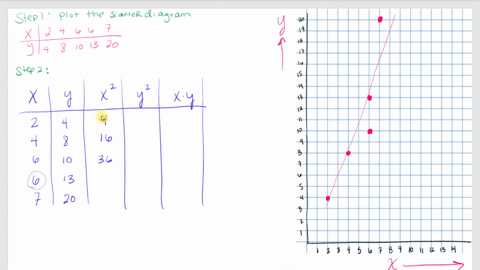 Step 1: Plot the scatter diagram
X 2 4 6 6 7
y 4 8 10 13 20
Step 2:
X y X² y² X·y
2 4 4
4 8 16
6 10 36
6 13
7 20
y
20
19
18
17
16
15
14
13
12
11
10
9
8
7
6
5
4
3
2
1
1 2 3 4 5 6 7 8 9 10 11 12 13 14
X